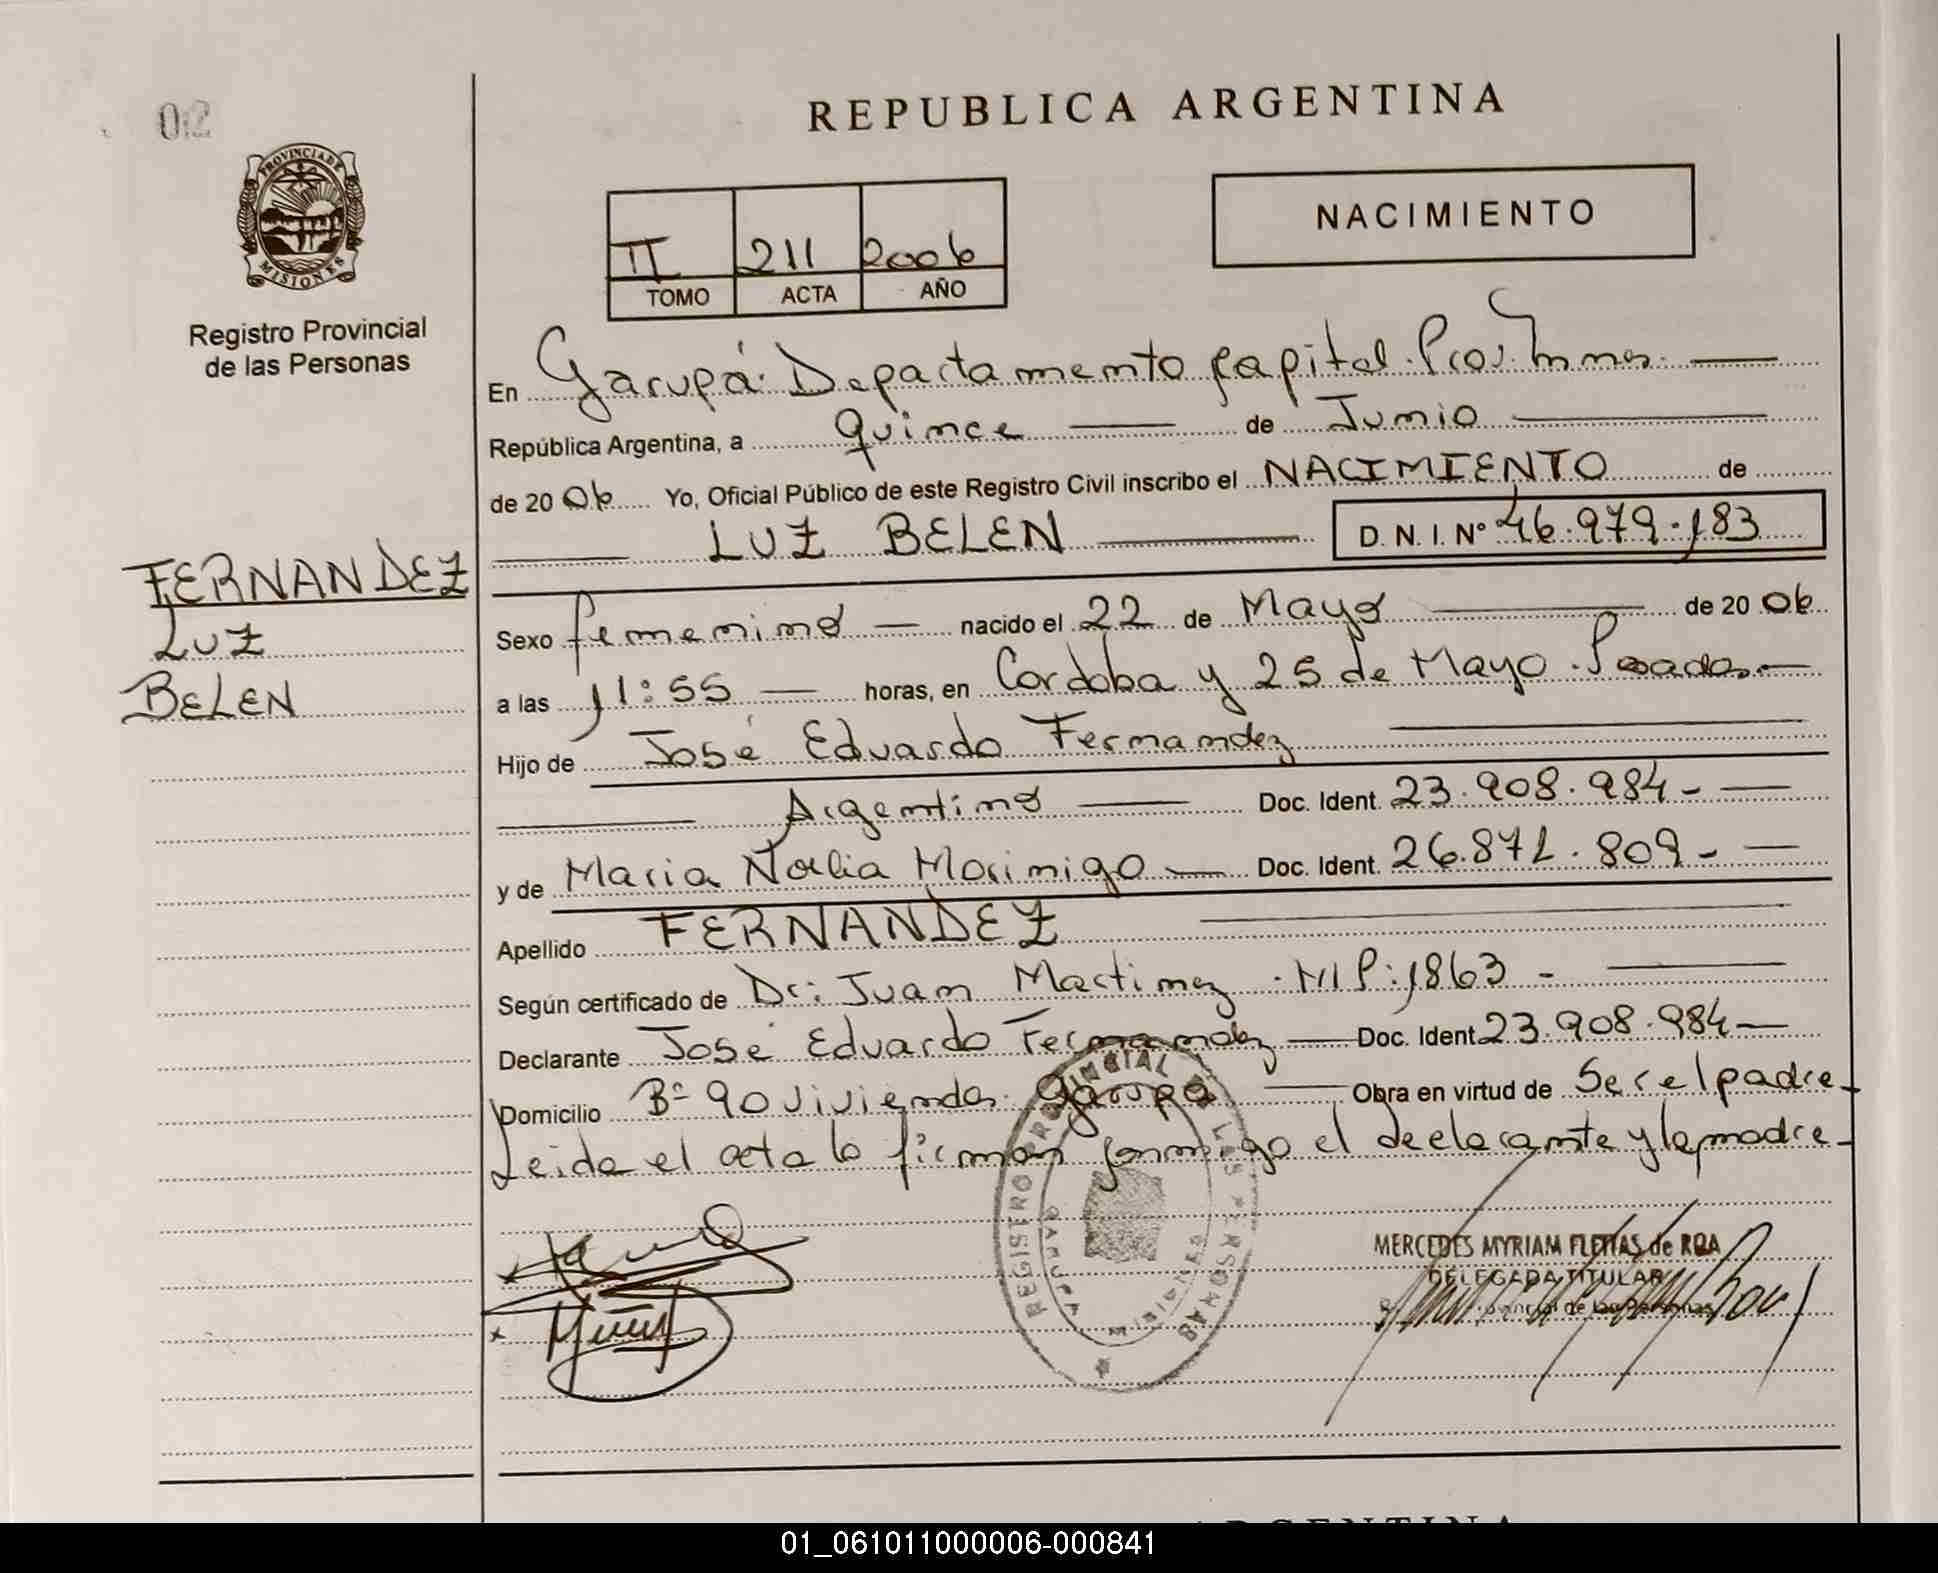 02
REPUBLICA ARGENTINA
PROVINCIA DE
MISIONES
Registro Provincial
de las Personas
NACIMIENTO
II 211 2006
TOMO ACTA AÑO
En Garupá Departamento Capital Prov. Mnes.
República Argentina, a Quince de Junio
de 2006 Yo, Oficial Público de este Registro Civil inscribo el NACIMIENTO de
LUZ BELEN D. N. I. N° 46.979.183
FERNANDEZ
LUZ
BELEN
Sexo femenino nacido el 22 de Mayo de 2006
a las 11:55 horas, en Cordoba y 25 de Mayo. Posadas
Hijo de José Eduardo Fernandez
Argentino Doc. Ident. 23.908.984-
y de Maria Morinigo Doc. Ident. 26.871.809-
Apellido FERNANDEZ
Según certificado de Dr: Juan Martinez . MP:1863 -
Declarante José Eduardo Fernandez Doc. Ident 23.908.984
Domicilio B° 90 viviendas Garupa Obra en virtud de Ser el padre
Leida el acta la firman conmigo el declarante y la madre
REGISTRO PROVINCIAL DE LAS PERSONAS
GARUPA MISIONES
MERCEDES MYRIAM FLEITAS de ROA
DELEGADA TITULAR
Provincial de las Personas
ARGENTINA
01_061011000006-000841